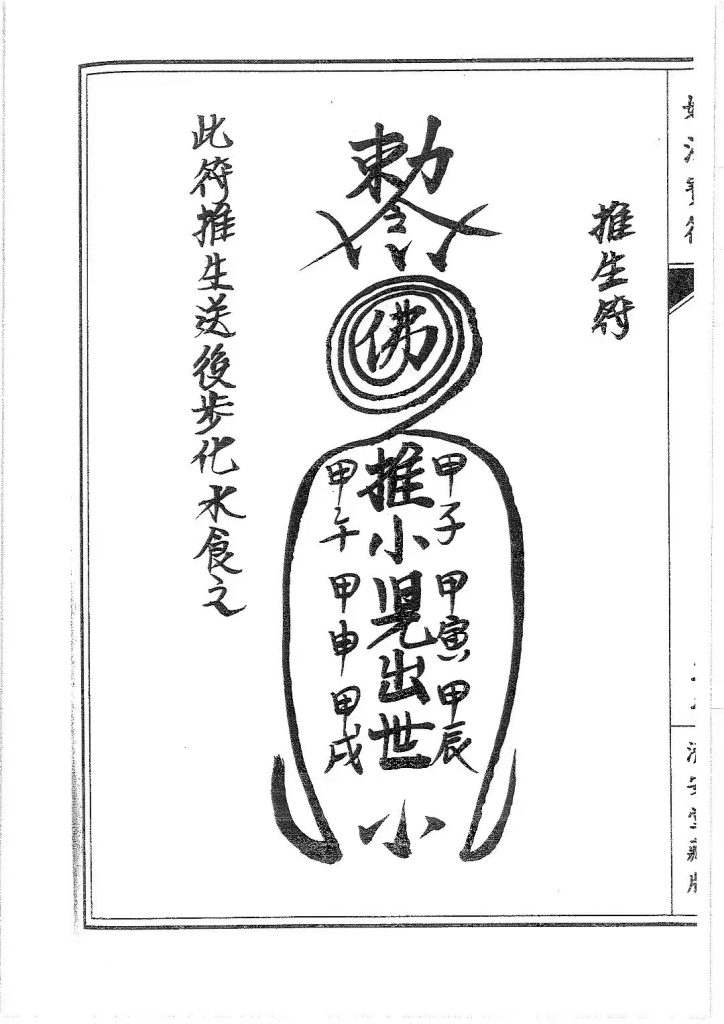 推生符
勅令
佛
甲子甲寅甲辰
推小児出世
甲午甲申甲戌
小
此符推生送後步化水食之